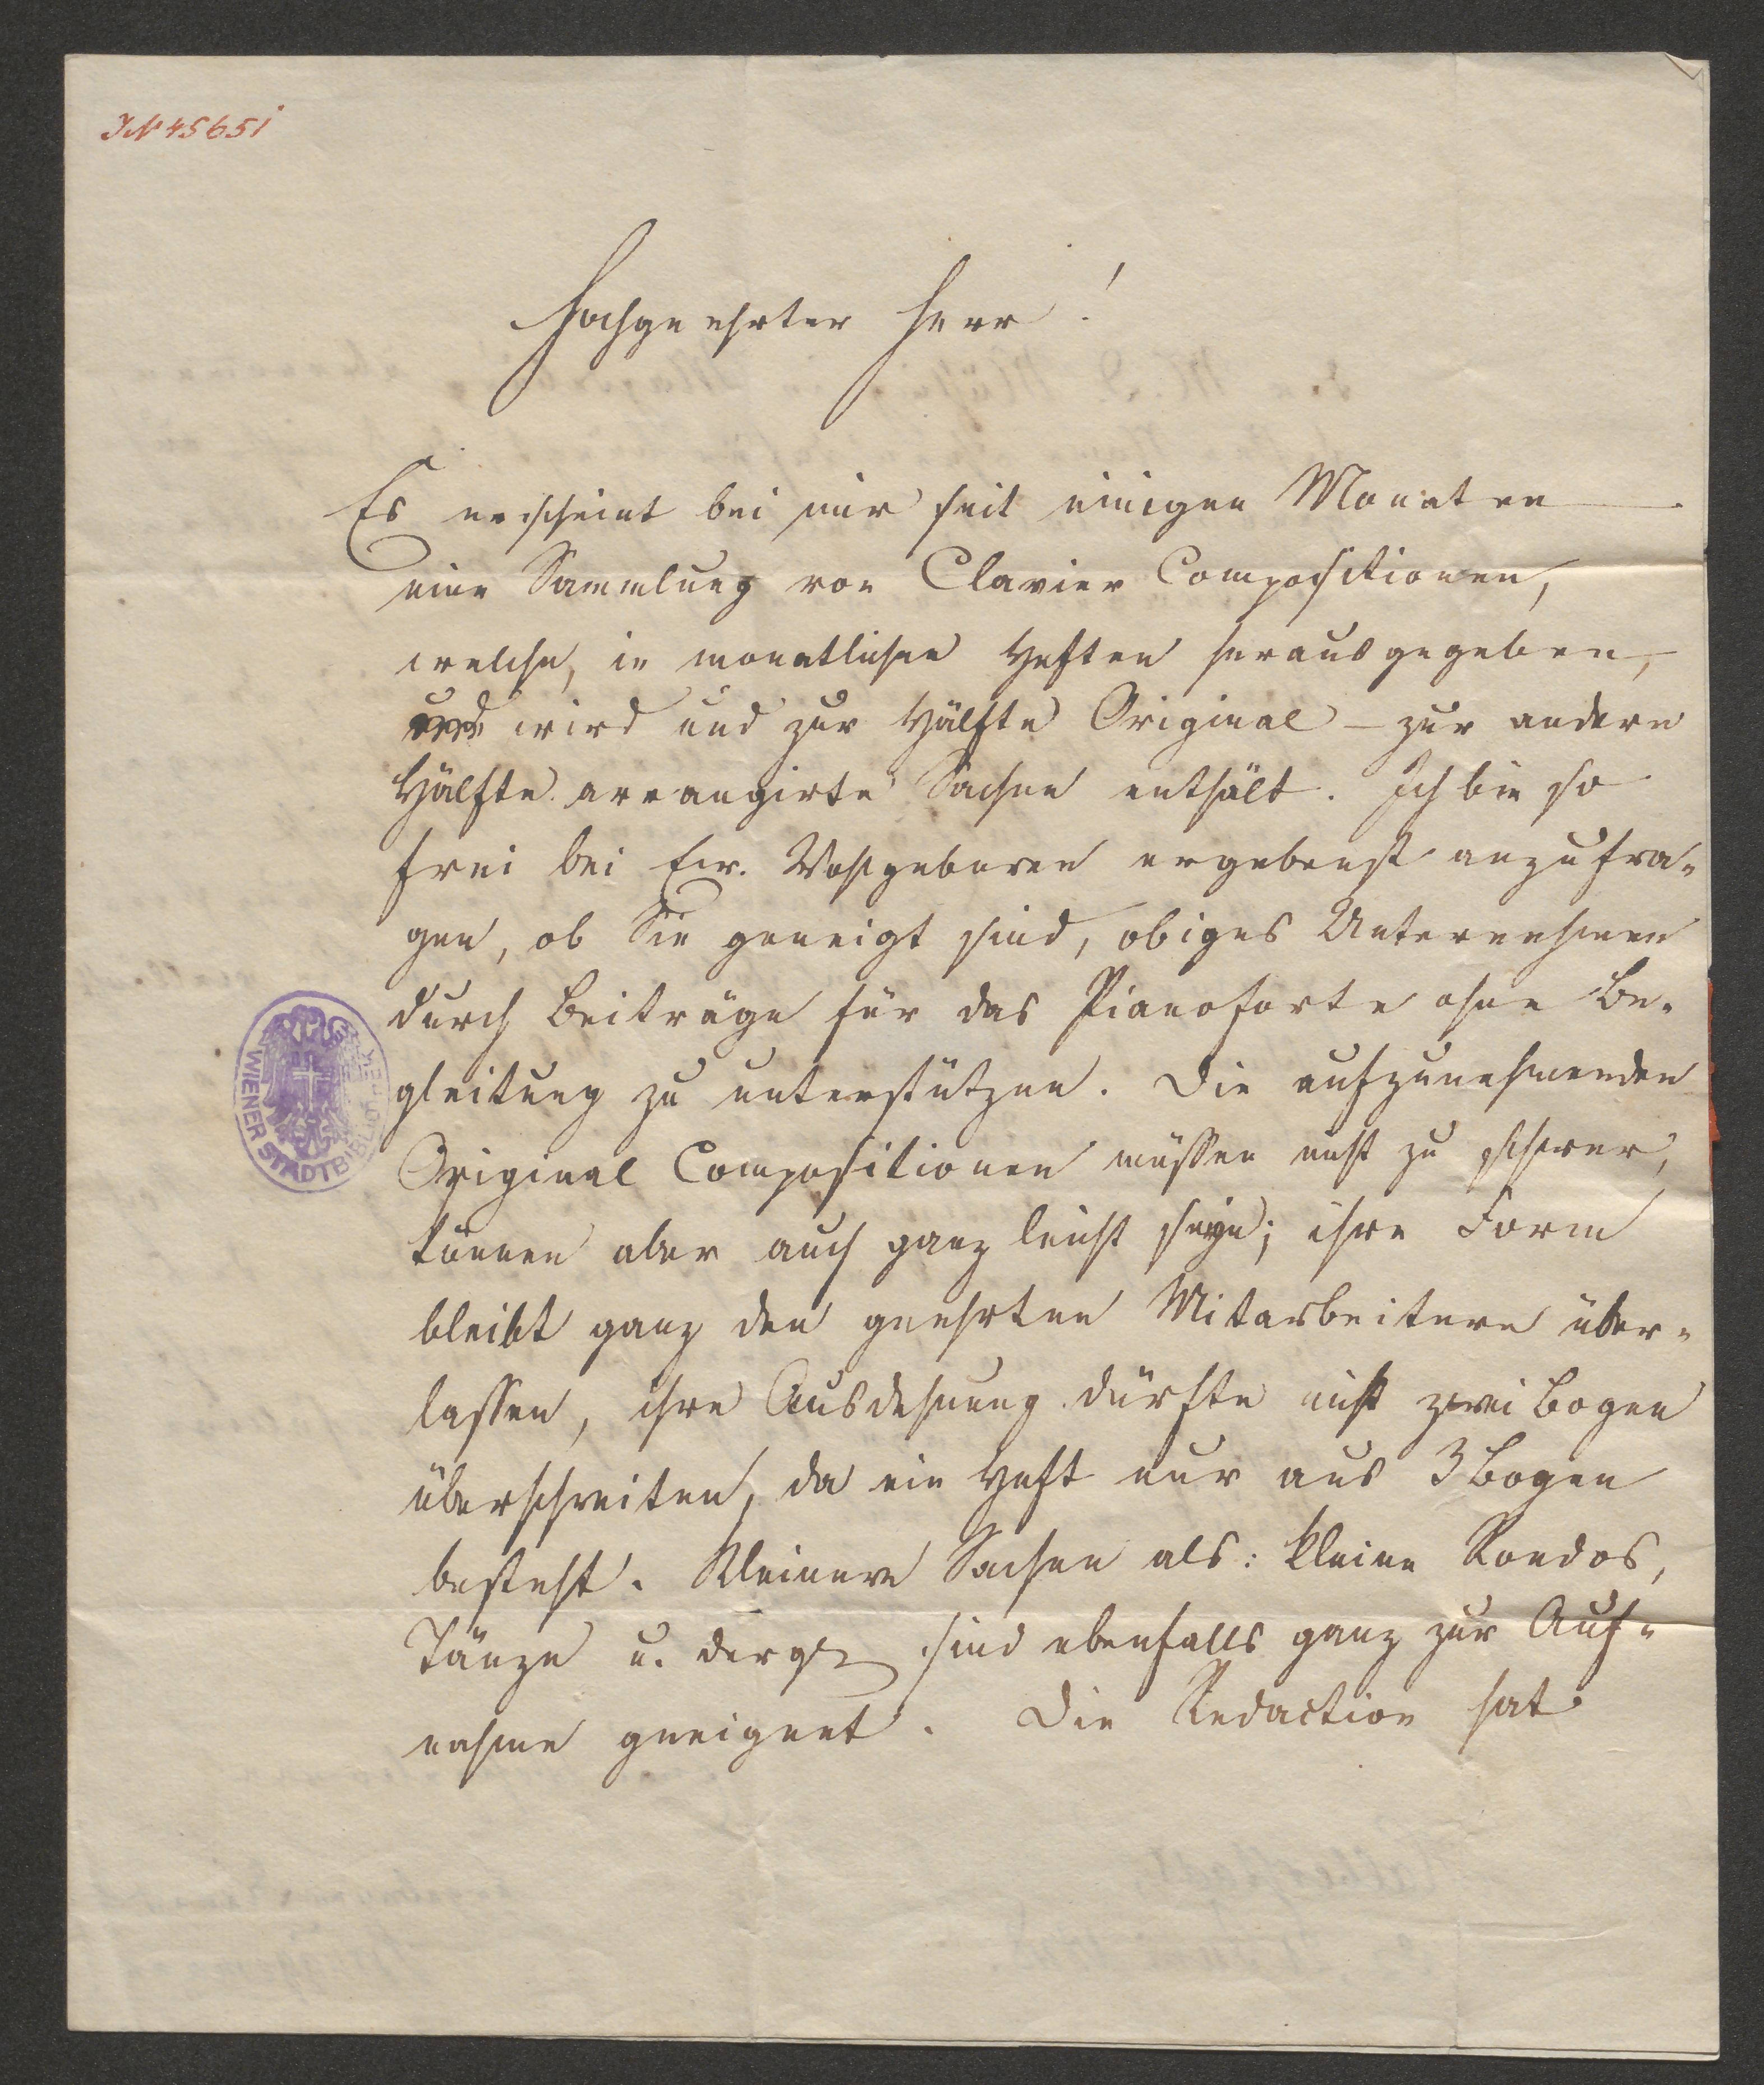 JN 45651
Hochgeehrter Herr!
Es erscheint bei mir seit einigen Monaten
eine Sammlung von Clavier Compositionen,
welche, in monatlichen Heften herausgegeben,
wird und zur Hälfte Original – zur andern
Hälfte arrangirte Sachen enthält. Ich bin so
frei bei Ew. Wohlgeboren ergebenst anzufra-
gen, ob Sie geneigt sind, obiges Unternehmen
durch Beiträge für das Pianoforte ohne Be-
gleitung zu unterstützen. Die aufzunehmenden
Original Compositionen müssen nicht zu schwer,
können aber auch ganz leicht seyn; ihre Form
bleibt ganz den geehrten Mitarbeitern über-
lassen, ihre Ausdehnung dürfte nicht zwei Bogen
überschreiten, da ein Heft nur aus 3 Bogen
besteht. Kleinere Sachen als: kleine Rondos,
Tänze u. dergl sind ebenfalls ganz zur Auf-
nahme geeignet. Die Redaction hat
WIENER STADTBIBLIOTHEK